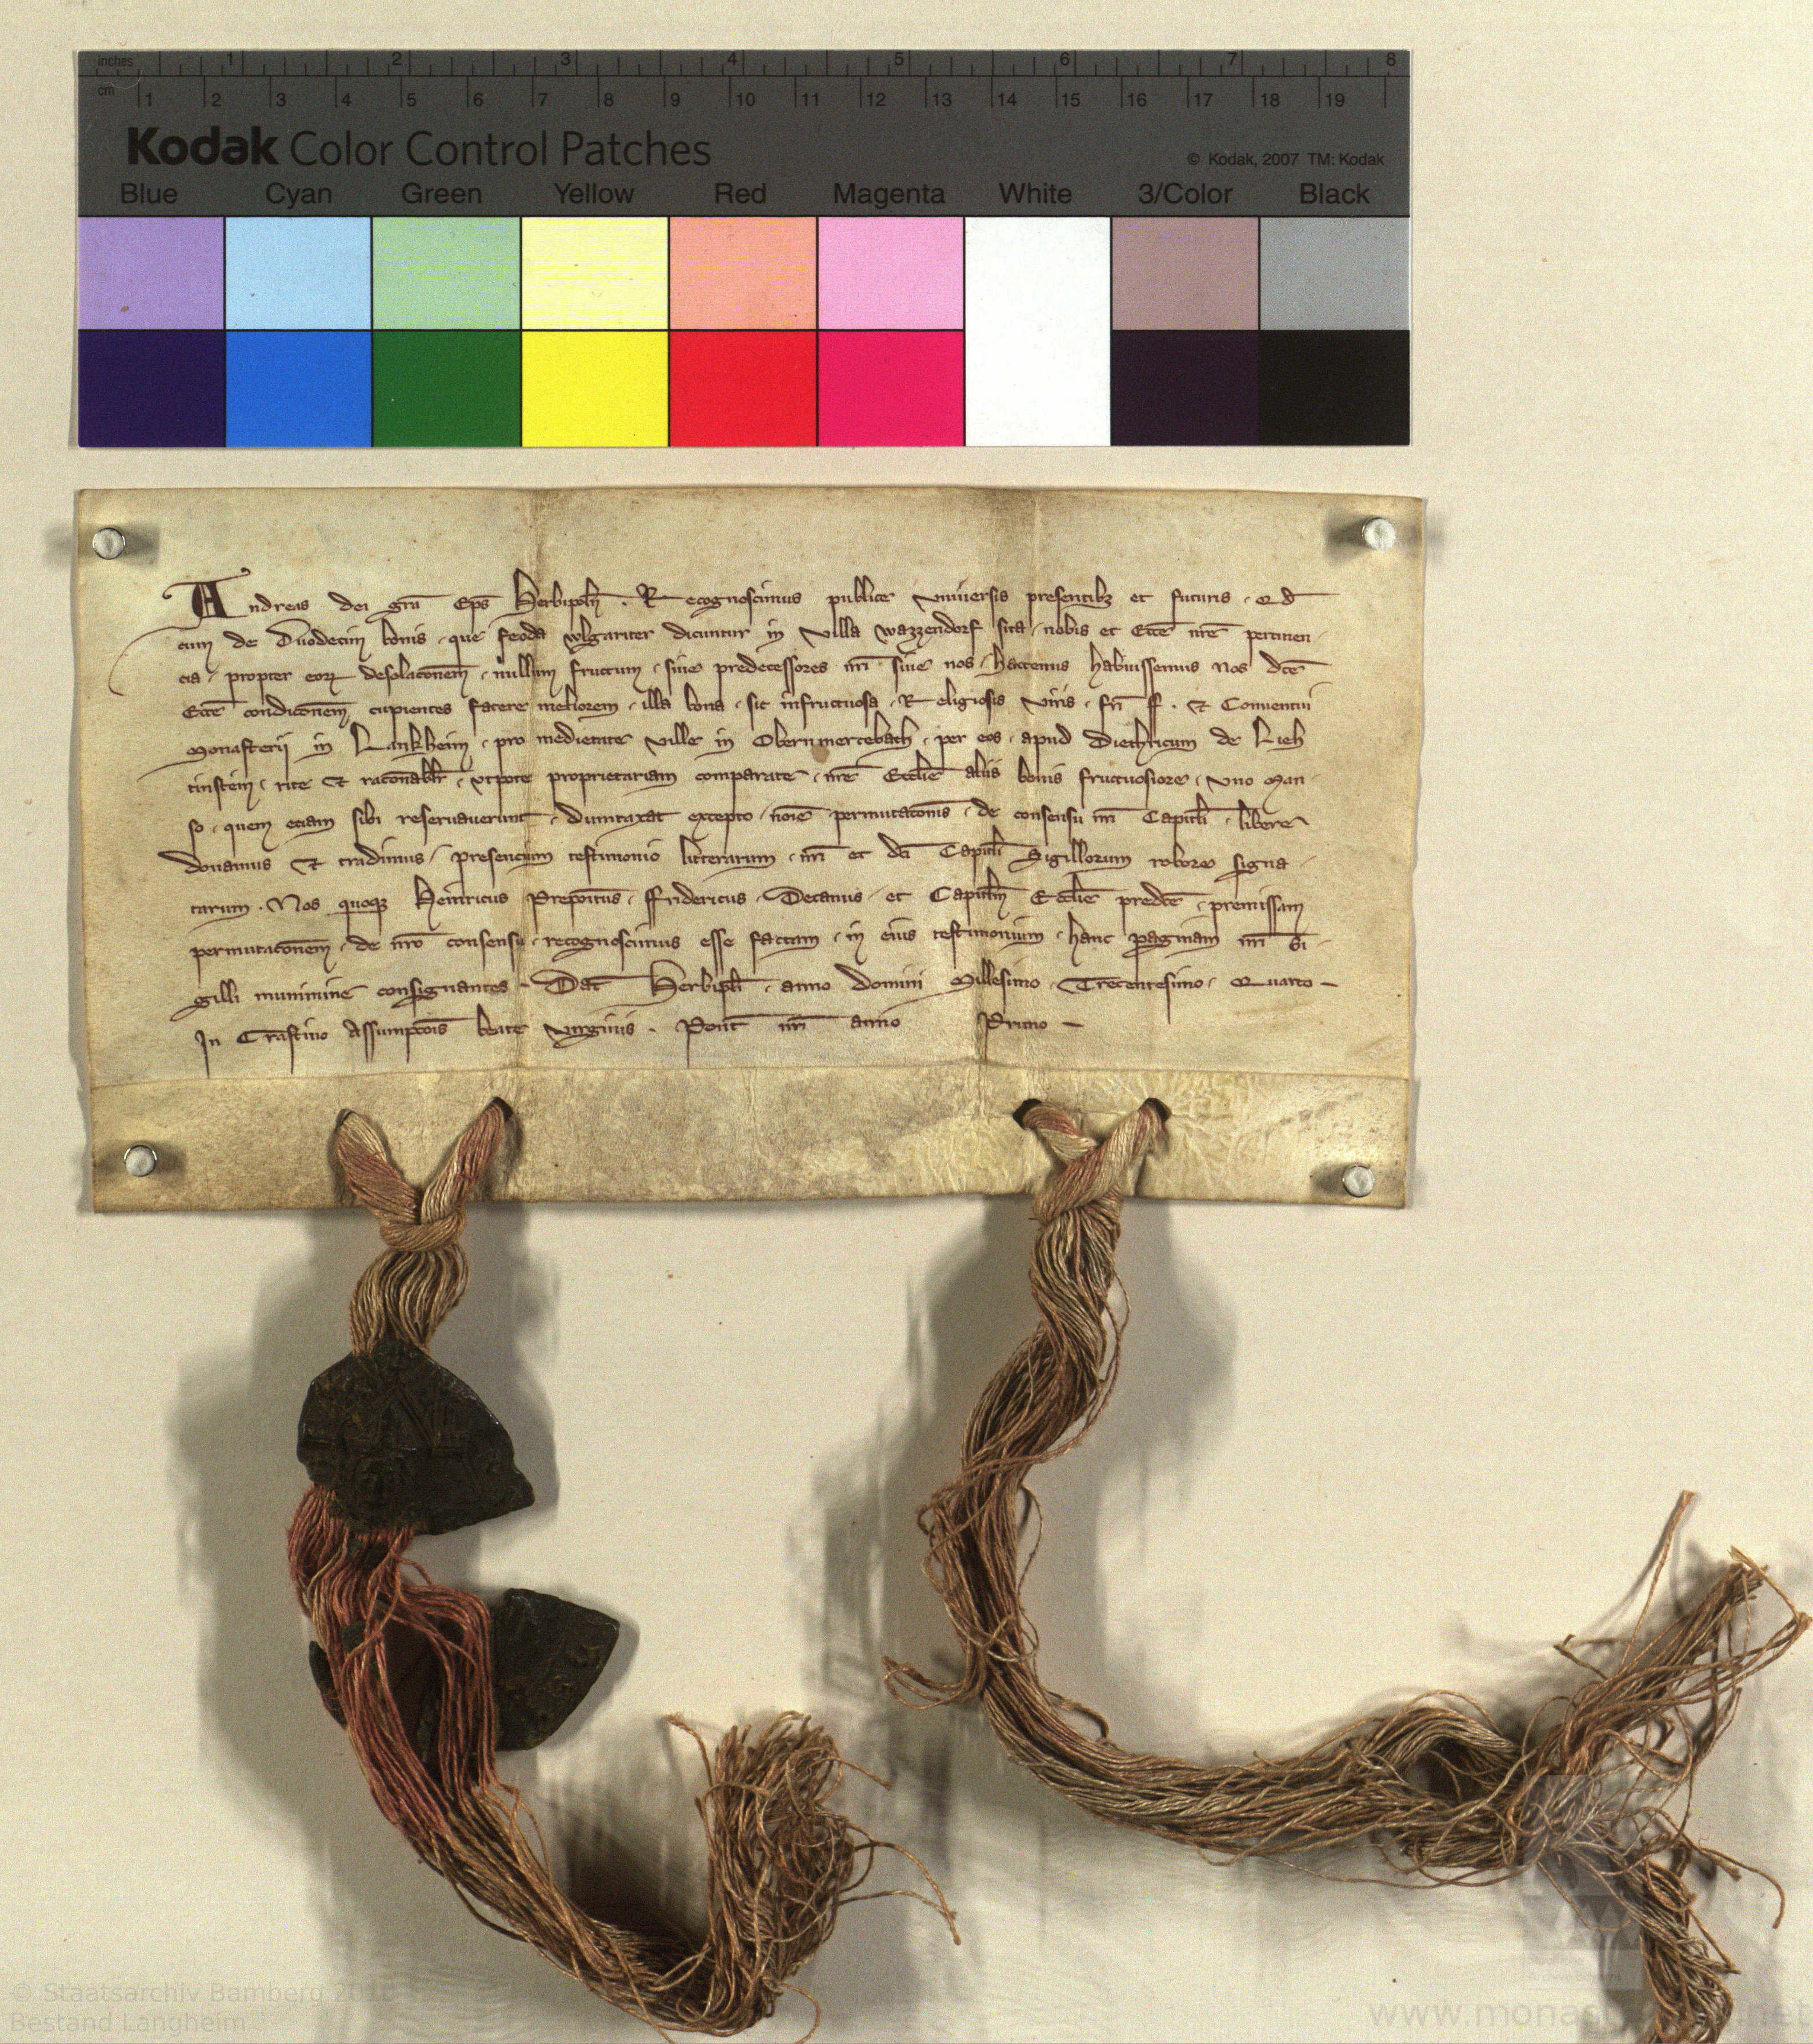 inches 1 2 3 4 5 6 7 8
cm 1 2 3 4 5 6 7 8 9 10 11 12 13 14 15 16 17 18 19
Kodak Color Control Patches
© Kodak, 2007 TM: Kodak
Blue Cyan Green Yellow Red Magenta White 3/Color Black
Andreas dei gra̅ Ep̅s Herbipoln̅ . Recognoscimus publice vniuersis presentibꝫ et futuris . Qd
cum de Duodecim bonis . que feoda wlgariter dicuntur in villa wazzendorf sita . nobis et Ecce̅ nre̅ pertinen
cia . propter eoꝝ desolaco̅nem . nullum fructum . siue predecessores nri̅ siue nos . hactenus habuissemus Nos dce̅
Ecce̅ condico̅nem cupientes facere meliorem . illa bona . sic infructuosa . Religiosis viris . fri̅ ff . et Conuentui
Monasterij in Lankheim . pro medietate ville in Obernmercebach . per eos . apud Diethricum de Lieh
tinstein . rite et raco̅nabilr̅ . vtpote proprietariam comparate . nre̅ Ecclie̅ aliis bonis fructuosiore . vno Man
so . quem eciam sibi reseruauerunt . dumtaxat excepto . noi̅e permutaco̅nis . de consensu nri̅ Capitli̅ . libere
donamus et tradimus . presencium testimonio litterarum . nri̅ et dci̅ Capitli̅ Sigillorum robore signa
tarum . Nos quoqꝫ Heinricus Prepoitus̅ . ffridericus . Decanus . et Capitlm̅ Ecclie̅ predce̅ . premissam
permutaco̅nem . de nro̅ consensu . recognoscimus esse factam . in eius testimonium . hanc paginam nri̅ Si
gilli munimine consignantes . Dat̅ Herbipli̅ . anno domini Millesimo . Trecentesimo . Quarto
In Crastino Assumpco̅is beate virginis . Pont̅ nri̅ anno Primo
© Staatsarchiv Bamberg
Bestand Langheim